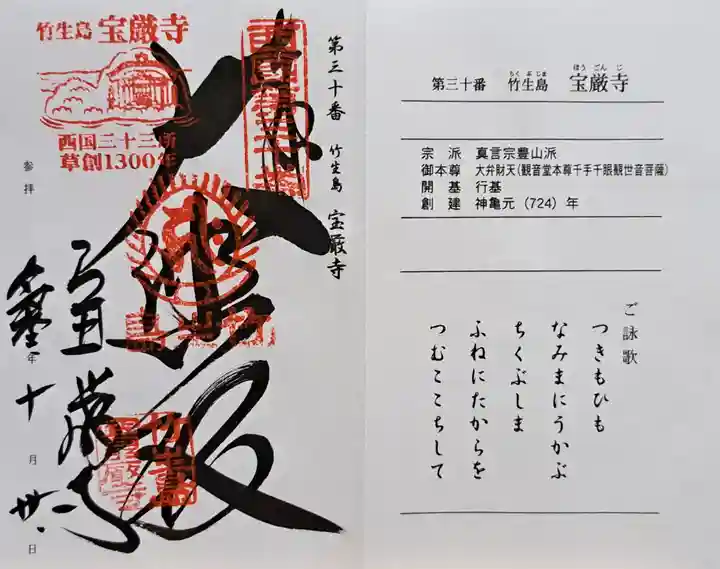 竹生島 宝厳寺
西国二十三所
草創1300年
参拝
年 十月 卅、日
大悲殿
宝厳寺
西国第三十番
竹生島
第三十番 竹生島 宝厳寺
第三十番 竹生島 宝厳寺
ちくぶじま
ほうごんじ
宗派 真言宗豊山派
御本尊 大弁財天(観音堂本尊千手千眼観世音菩薩)
開基 行基
創建 神亀元(724)年
ご詠歌
つきもひも
なみまにうかぶ
ちくぶしま
ふねにたからを
つむここちして